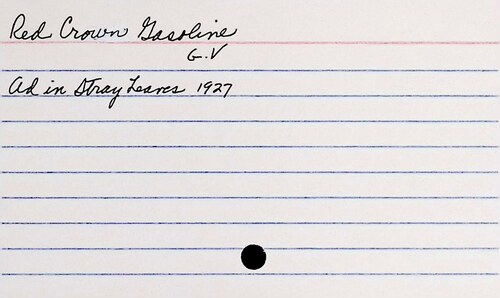 Red Crown Gasoline
G.V
Ad in Stray Leaves 1927